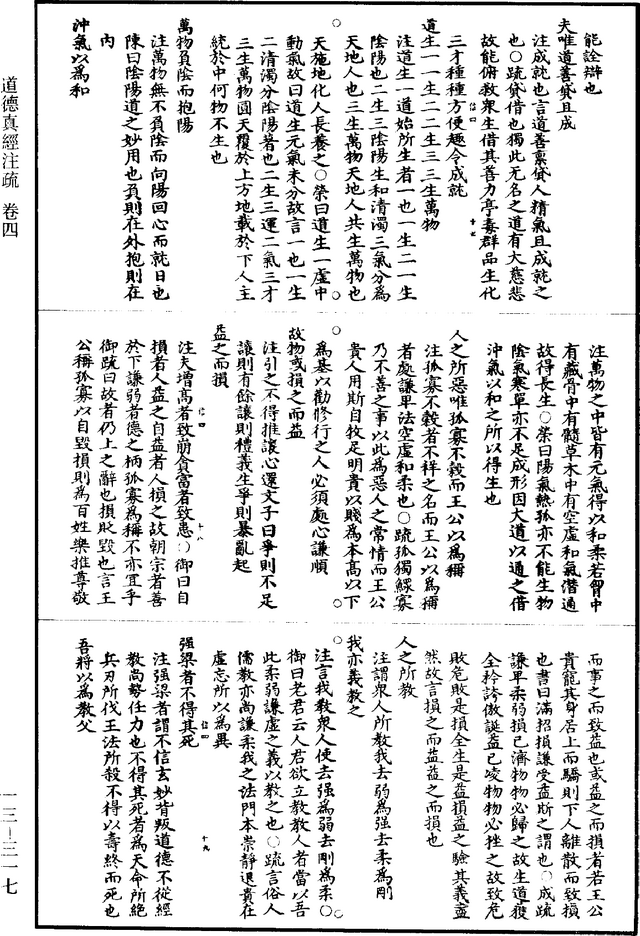 能詮辯也
夫唯道善貸且成
注成就也言道善稟貸人精氣且成就之
也○疏貸借也獨此无名之道有大慈悲
故能俯救衆生借其善力亭毒群品生化
三才種種方便趣令成就
道生一一生二二生三三生萬物
注道生一道始所生者一也一生二一生
陰陽也二生三陰陽生和清濁三氣分爲
天地人也三生萬物天地人共生萬物也
天施地化人長養之○榮曰道生一虛中
動氣故曰道生元氣未分故言一也一生
二清濁分陰陽著也二生三運二氣三才
三生萬物圓天覆於上方地載於下人主
統於中何物不生也
萬物負陰而抱陽
注萬物無不負陰而向陽回心而就日也
陳曰陰陽道之妙用也負則在外抱則在
内
沖氣以爲和
注萬物之中皆有元氣得以和柔若胷中
有藏骨中有髓草木中有空虛和氣潛通
故得長生○榮曰陽氣熱孤亦不能生物
陰氣寒單亦不足成形因大道以通之借
沖氣以和之所以得生也
人之所惡唯孤寡不穀而王公以爲稱
注孤寡不穀者不祥之名而王公以爲稱
者處謙卑法空虛和柔也○疏孤獨鰥寡
乃不善之事以此爲惡人之常情而王公
貴人用斯自牧足明貴以賤爲本高以下
爲基以勸修行之人必須處心謙順
故物或損之而益
注引之不得推讓心還文子曰爭則不足
讓則有餘讓則禮義生爭則暴亂起
益之而損
注夫增高者致崩貪富者致患○御曰自
損者人益之自益者人損之故朝宗者善
於下謙弱者德之柄孤寡爲稱不亦宜乎
御疏曰故者仍上之辭也損貶毁也言王
公稱孤寡以自毁損則爲百姓樂推尊敬
而事之而致益也或益之而損者若王公
貴寵其身居上而驕則下人離散而致損
也書曰滿招損謙受益斯之謂也○成疏
謙卑柔弱損己濟物物必歸之故生道獲
全矜誇傲誕益己凌物物必挫之故致危
敗危敗是損全生是益損益之驗其義盍
然故言損之而益益之而損也
人之所教
注謂衆人所教我去弱爲強去柔爲剛
我亦義教之
注言我教衆人使去强爲弱去剛爲柔○
御曰老君云人君欲立教教人者當以吾
此柔弱謙虛之義以教之也○疏言俗人
儒教亦尚謙柔我之法門本崇靜退貴在
虛忘所以爲異
强梁者不得其死
注强梁者謂不信玄妙背叛道德不從經
教尚勢任力也不得其死者爲天命所絶
兵刃所伐王法所殺不得以壽終而死也
吾將以爲教父
道德真經注疏 卷四
一三—三一七